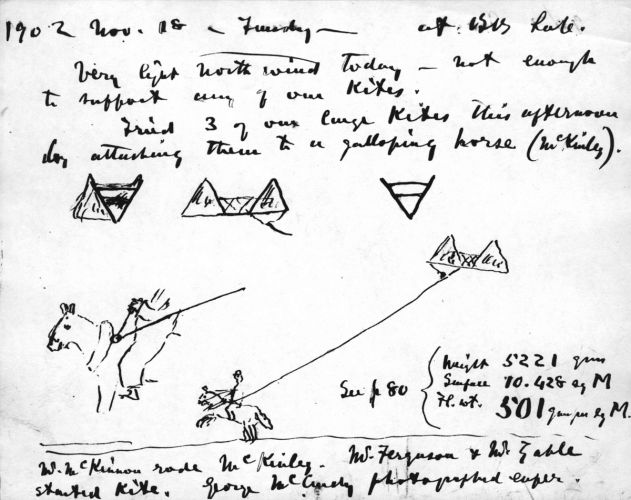 1902 Nov. 18 — Tuesday — at B.B Lab.
Very light north wind today — not enough
to support any of our Kites.
Tried 3 of our large Kites this afternoon
by attaching them to a galloping horse (McKinley).
See p 80
Weight 5221 gms
Surface 10.428 sq M
Fl. wt. 501 gms per sq M.
Mr. McKinnon rode McKinley. Mr. Ferguson & Mr.
started Kite. George McCurdy photographed exper.